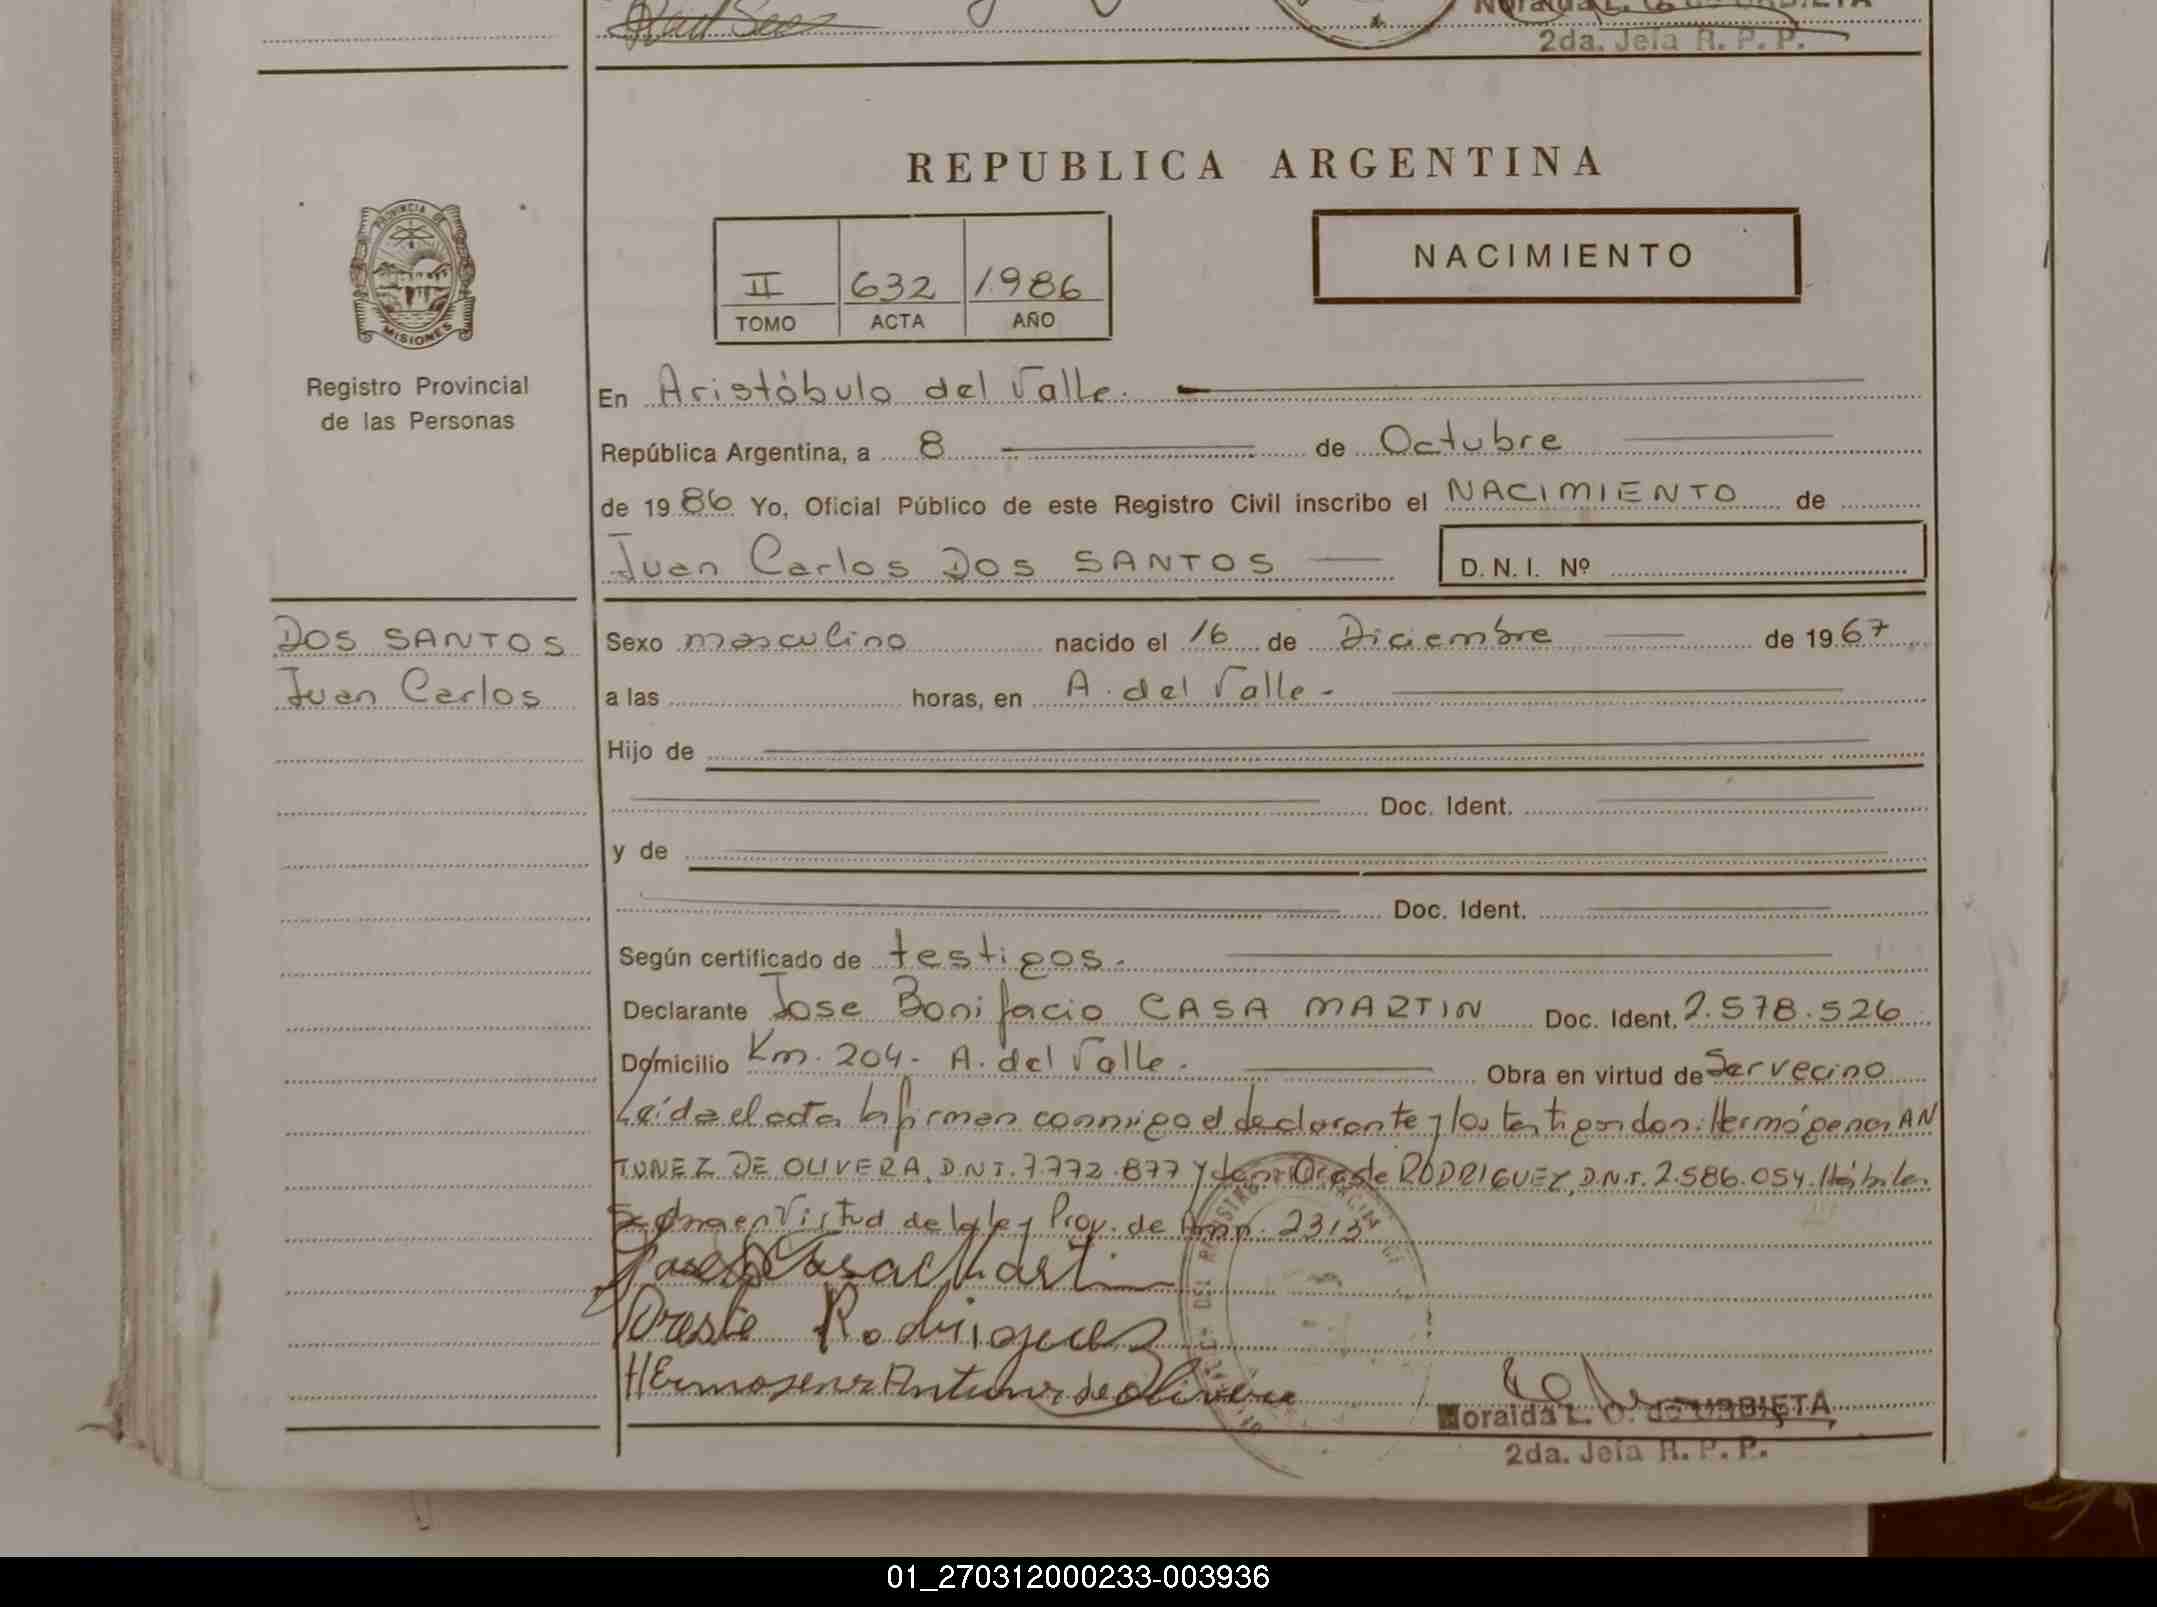 2da. Jefa R. P. P.
REPUBLICA ARGENTINA
PROVINCIA DE
MISIONES
Registro Provincial
de las Personas
II 632 1986
TOMO ACTA AÑO
NACIMIENTO
En Aristóbulo del Valle.
República Argentina, a 8 de Octubre
de 1986 Yo, Oficial Público de este Registro Civil inscribo el NACIMIENTO de
Juan Carlos DOS SANTOS D. N. I. Nº
DOS SANTOS
Juan Carlos
Sexo masculino nacido el 16 de Diciembre de 1967
a las horas, en A. del Valle -
Hijo de
Doc. Ident.
y de
Doc. Ident.
Según certificado de testigos.
Declarante Jose Bonifacio CASA MARTIN Doc. Ident. 2.578.526
Domicilio Km. 204 - A. del Valle. Obra en virtud de Ser vecino
Leída el acta la firman conmigo el declarante y los testigos don: Hermógenes AN
TUNEZ DE OLIVERA, D.N.I. 7.772.877 y don: Oreste RODRIGUEZ, D.N.I. 2.586.054. Hábiles
en Virtud de la ley Prov. de Amn. 2313
Jose B Casa Martin
Oreste Rodrigues
HErmogenes Antunez de Olivera
Noraida L. O. de URBIETA
2da. Jefa R. P. P.
01_270312000233-003936